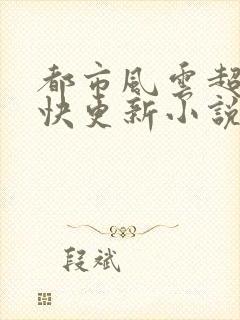 都市風雲超
快更新小說
段斌